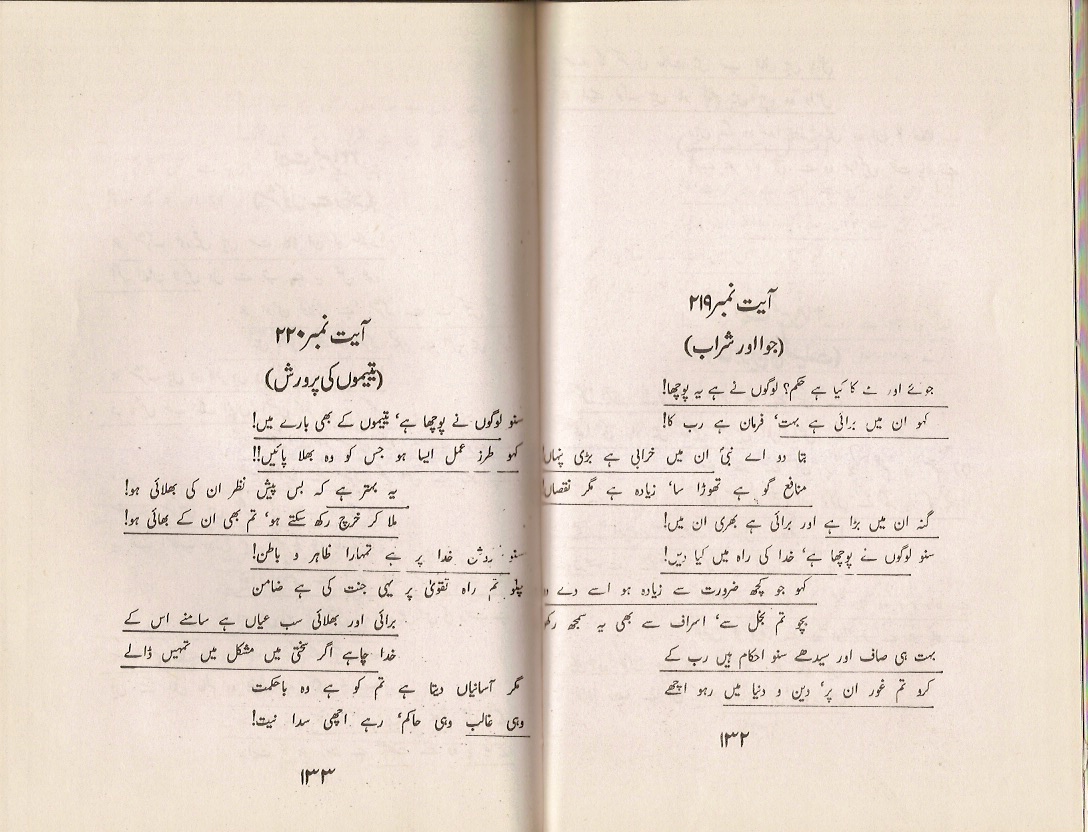 آیت نمبر ۲۱۹
(جوا اور شراب)
جوئے اور مے کا کیا ہے حکم؟ لوگوں نے ہے یہ پوچھا!
کہو ان میں برائی ہے بہت‘ فرمان ہے رب کا!
بتا دو اے نبیؐ ان میں خرابی ہے بڑی پنہاں!
منافع گو ہے تھوڑا سا‘ زیادہ ہے مگر نقصاں!
گنہ ان میں بڑا ہے اور برائی ہے بھری ان میں!
سنو لوگوں نے پوچھا ہے‘ خدا کی راہ میں کیا دیں!
کہو جو کچھ ضرورت سے زیادہ ہو اسے دے دو
بچو تم بخل سے‘ اسراف سے بھی یہ سمجھ رکھو
بہت ہی صاف اور سیدھے سنو احکام ہیں رب کے
کرو تم غور ان پر‘ دین و دنیا میں رہو اچھے
۱۳۲
آیت نمبر ۲۲۰
(یتیموں کی پرورش)
سنو لوگوں نے پوچھا ہے‘ یتیموں کے بھی بارے میں!
کہو طرز عمل ایسا ہو جس کو وہ بھلا پائیں!!
یہ بہتر ہے کہ بس پیش نظر ان کی بھلائی ہو!
ملا کر خرچ رکھ سکتے ہو‘ تم بھی ان کے بھائی ہو!
سنو روشن خدا پر ہے تمہارا ظاہر و باطن!
چلو تم راہ تقویٰ پر یہی جنت کی ہے ضامن
برائی اور بھلائی سب عیاں ہے سامنے اس کے
خدا چاہے اگر سختی میں مشکل میں تمہیں ڈالے
مگر آسانیاں دیتا ہے تم کو ہے وہ باحکمت
وہی غالب وہی حاکم‘ رہے اچھی سدا نیت!
۱۳۳